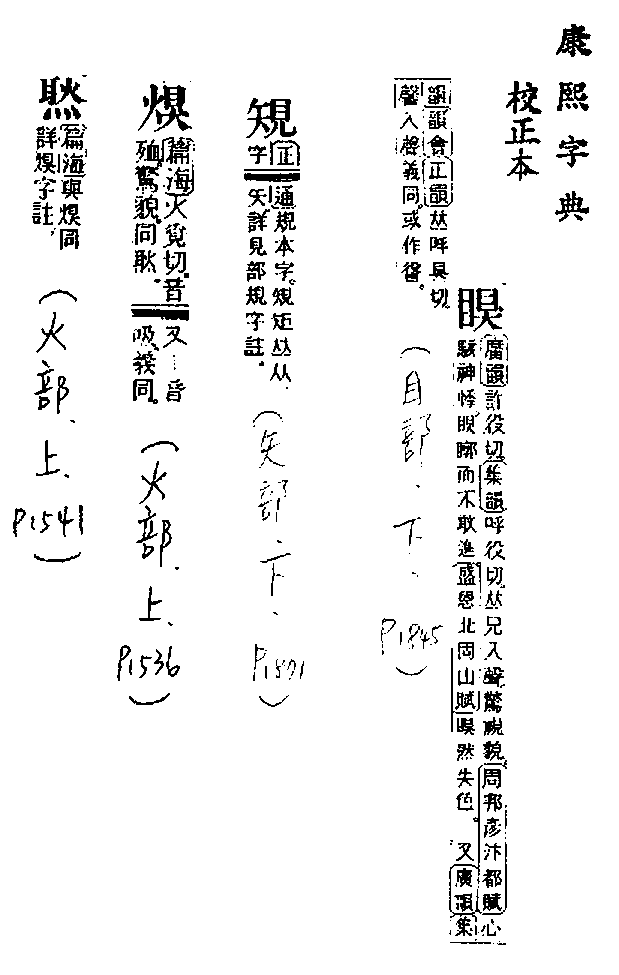 康熙字典
校正本
瞁
廣韻許役切集韻呼役切𠀤兄入聲驚視貌。周邦彥汴都賦心
駭神悸瞁而不敢進盛恩北岡山賦瞁然失色。又廣韻集
韻韻會正韻𠀤呼狊切
馨入聲義同。或作
(目部、下、P.1845)
䂓
正字
通規本字。䂓矩𠀤从
矢詳見部規字註。
(矢部、下、
篇海火覓切音
殈驚貌。同
又一音
吸。義同。
(火部、上、P.1536)
篇海與同
詳字註。
(火部、上、P.1541)